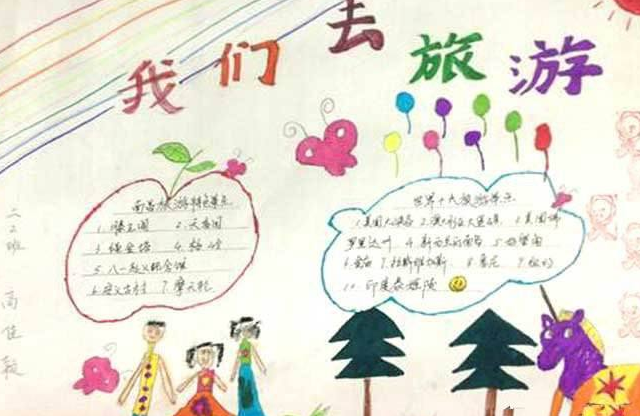 我们去旅游
南昌旅游特色景点
1. 滕王阁 2. 天香园
3. 绳金塔 4. 梅岭
5. 八一起义纪念馆
6. 安义古村 7. 摩天轮
世界十大旅游景点
1. 美国大峡谷 2. 澳大利亚大堡礁 3. 美国佛
罗里达州 4. 新西兰南岛 5. 好望角
6. 金庙 7. 拉斯维加斯 8. 悉尼 9. 纽约
10. 印度泰姬陵
二2班
高佳